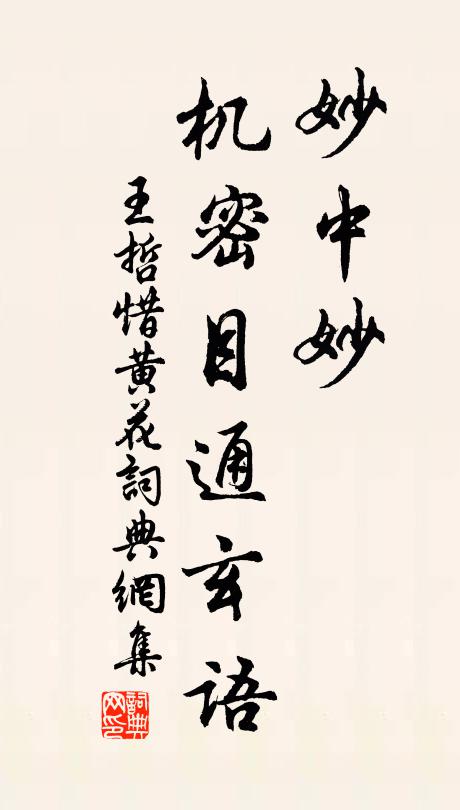 妙中妙
机密目通玄语
王哲惜黄花詞典網集
詞典网印